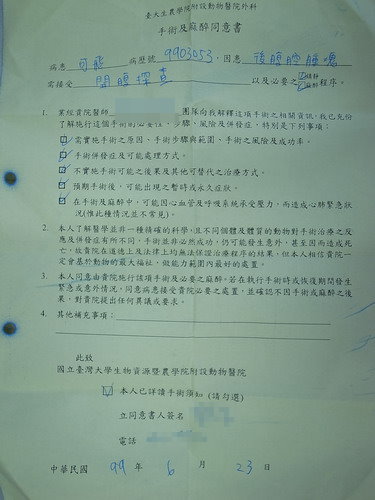 臺大生農學院附設動物醫院外科
手術及麻醉同意書
病患 可能 病歷號 9903053,因患 後腹腔腫塊
需接受 開腹探查 以及必要之☑鎮靜☑麻醉程序。
1. 業經貴院醫師 團隊向我解釋這項手術之相關資訊,我已充份
了解施行這個手術的必要性、步驟、風險及併發症,特別是下列事項:
☑ 需實施手術之原因、手術步驟與範圍、手術之風險及成功率。
☑ 手術併發症及可能處理方式。
☑ 不實施手術可能之後果及其他可替代之治療方式。
☑ 預期手術後,可能出現之暫時或永久症狀。
☑ 在手術及麻醉中,可能因心血管及呼吸系統承受壓力,而造成心肺緊急狀
況(惟此種情況並不常見)。
2. 本人了解醫學並非一種精確的科學,且不同個體及體質的動物對手術治療之反
應及併發症有所不同,手術並非必然成功,仍可能發生意外,甚至因而造成死
亡,故貴院在道德上及法律上均無法保證治療程序的結果,但本人相信貴院一
定會基於動物的最大福祉,做能力範圍內最好的處置。
3. 本人同意由貴院施行該項手術及必要之麻醉。若在執行手術時或恢復期間發生
緊急或意外情況,同意病患接受貴院必要之處置,並確認不因手術或麻醉之後
果,對貴院提出任何異議或要求。
4. 其他補充事項:
此致
國立臺灣大學生物資源暨農學院附設動物醫院
☑ 本人已詳讀手術須知 (請勾選)
立同意書人簽名
電話
中華民國 99 年 6 月 23 日